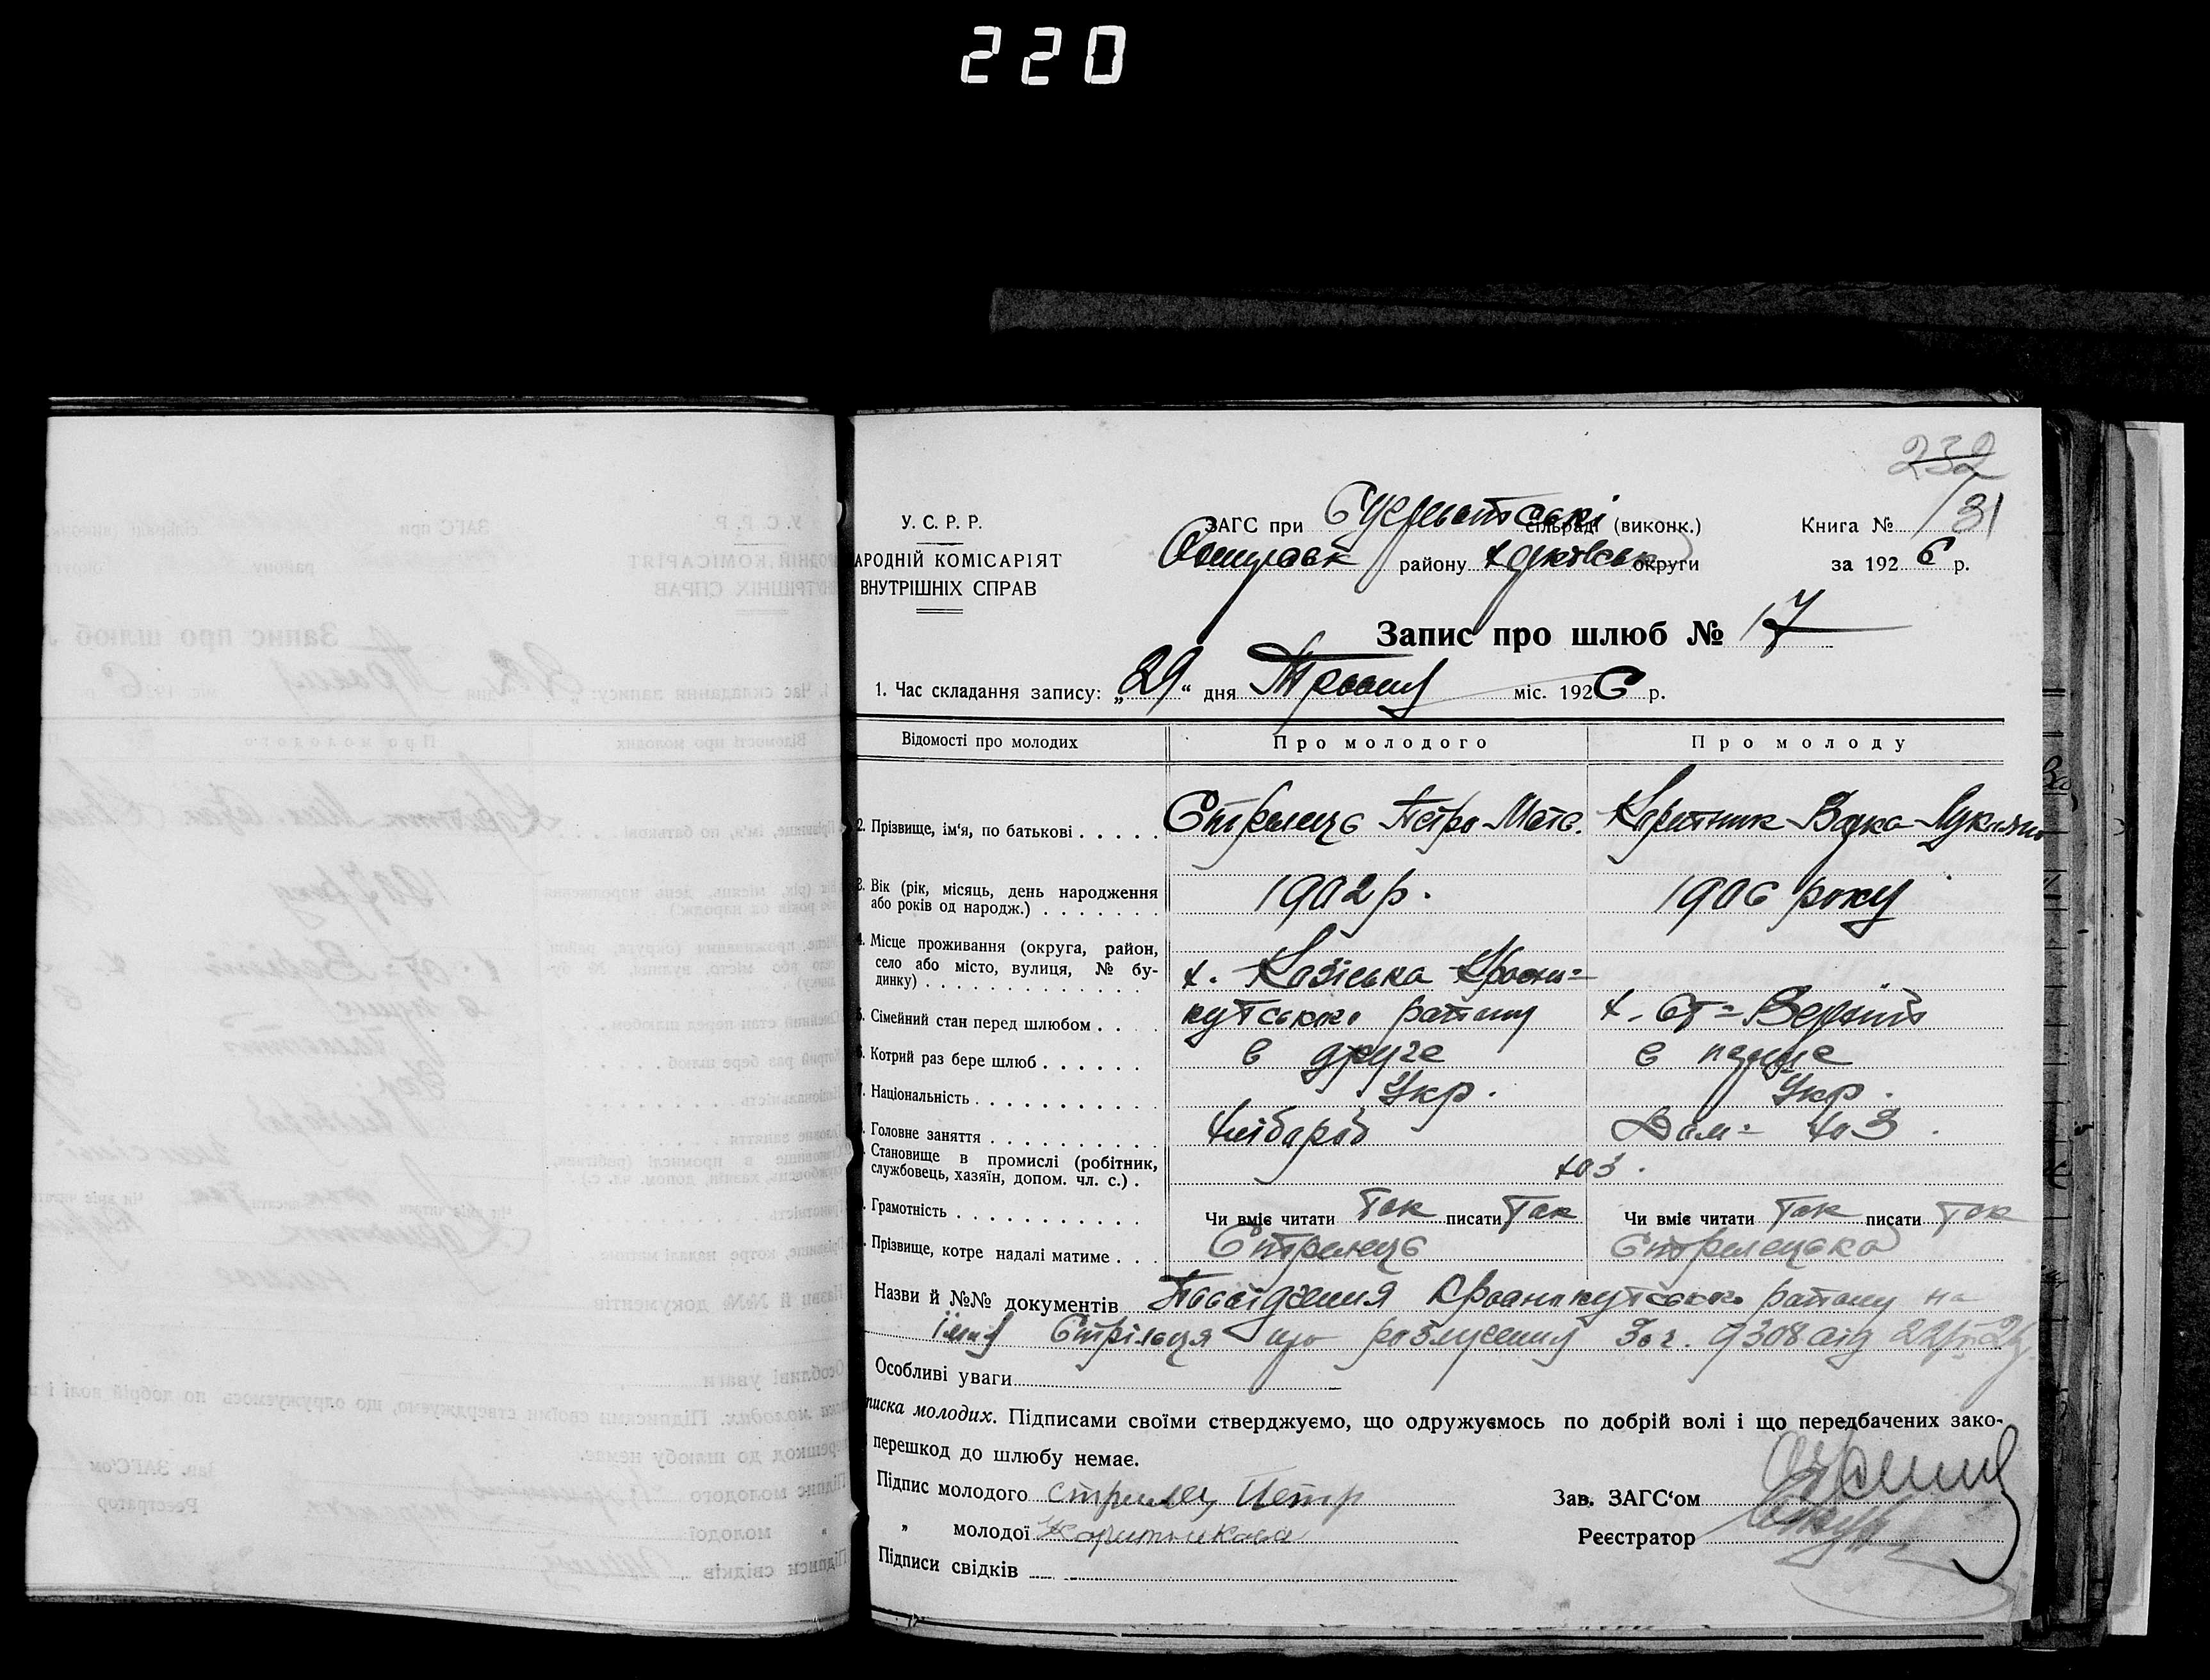 220
232
131
У. С. Р. Р.
АРОДНІЙ КОМІСАРІЯТ
ВНУТРІШНІХ СПРАВ
ЗАГС при сільраді (виконк.)
району округи
Книга №
за 1926 р.
Запис про шлюб № 17
1. Час складання запису: „29“ дня Травня міс. 1926 р.
Відомості про молодих
Про молодого
Про молоду
2. Прізвище, ім'я, по батькові
Стрелець Петро Матв.
Коритник Варка Лукяно
3. Вік (рік, місяць, день народження або років од народж.)
1902 р.
1906 року
4. Місце проживання (округа, район, село або місто, вулиця, № будинку)
х. Козієвка Красно=
кутського району
5. Сімейний стан перед шлюбом
6. Котрий раз бере шлюб
в друге
в перше
7. Національність
Укр.
Укр.
Головне заняття
Хлібороб
Дом= хоз.
Становище в промислі (робітник, службовець, хазяїн, допом. чл. с.)
хоз.
Грамотність
Чи вміє читати Так писати Так
Чи вміє читати Так писати Так
Прізвище, котре надалі матиме
Стрелець
Стрелецька
Назви й №№ документів Посвідчення Краснокутського району на
імя Стрільця про розлучення За ч. 9308 від
Особливі уваги
писка молодих. Підписами своїми стверджуємо, що одружуємось по добрій волі і що передбачених зако-
перешкод до шлюбу немає.
Підпис молодого Стрилец Петр
„ молодої Коритникова
Підписи свідків
Зав. ЗАГС'ом
Реєстратор